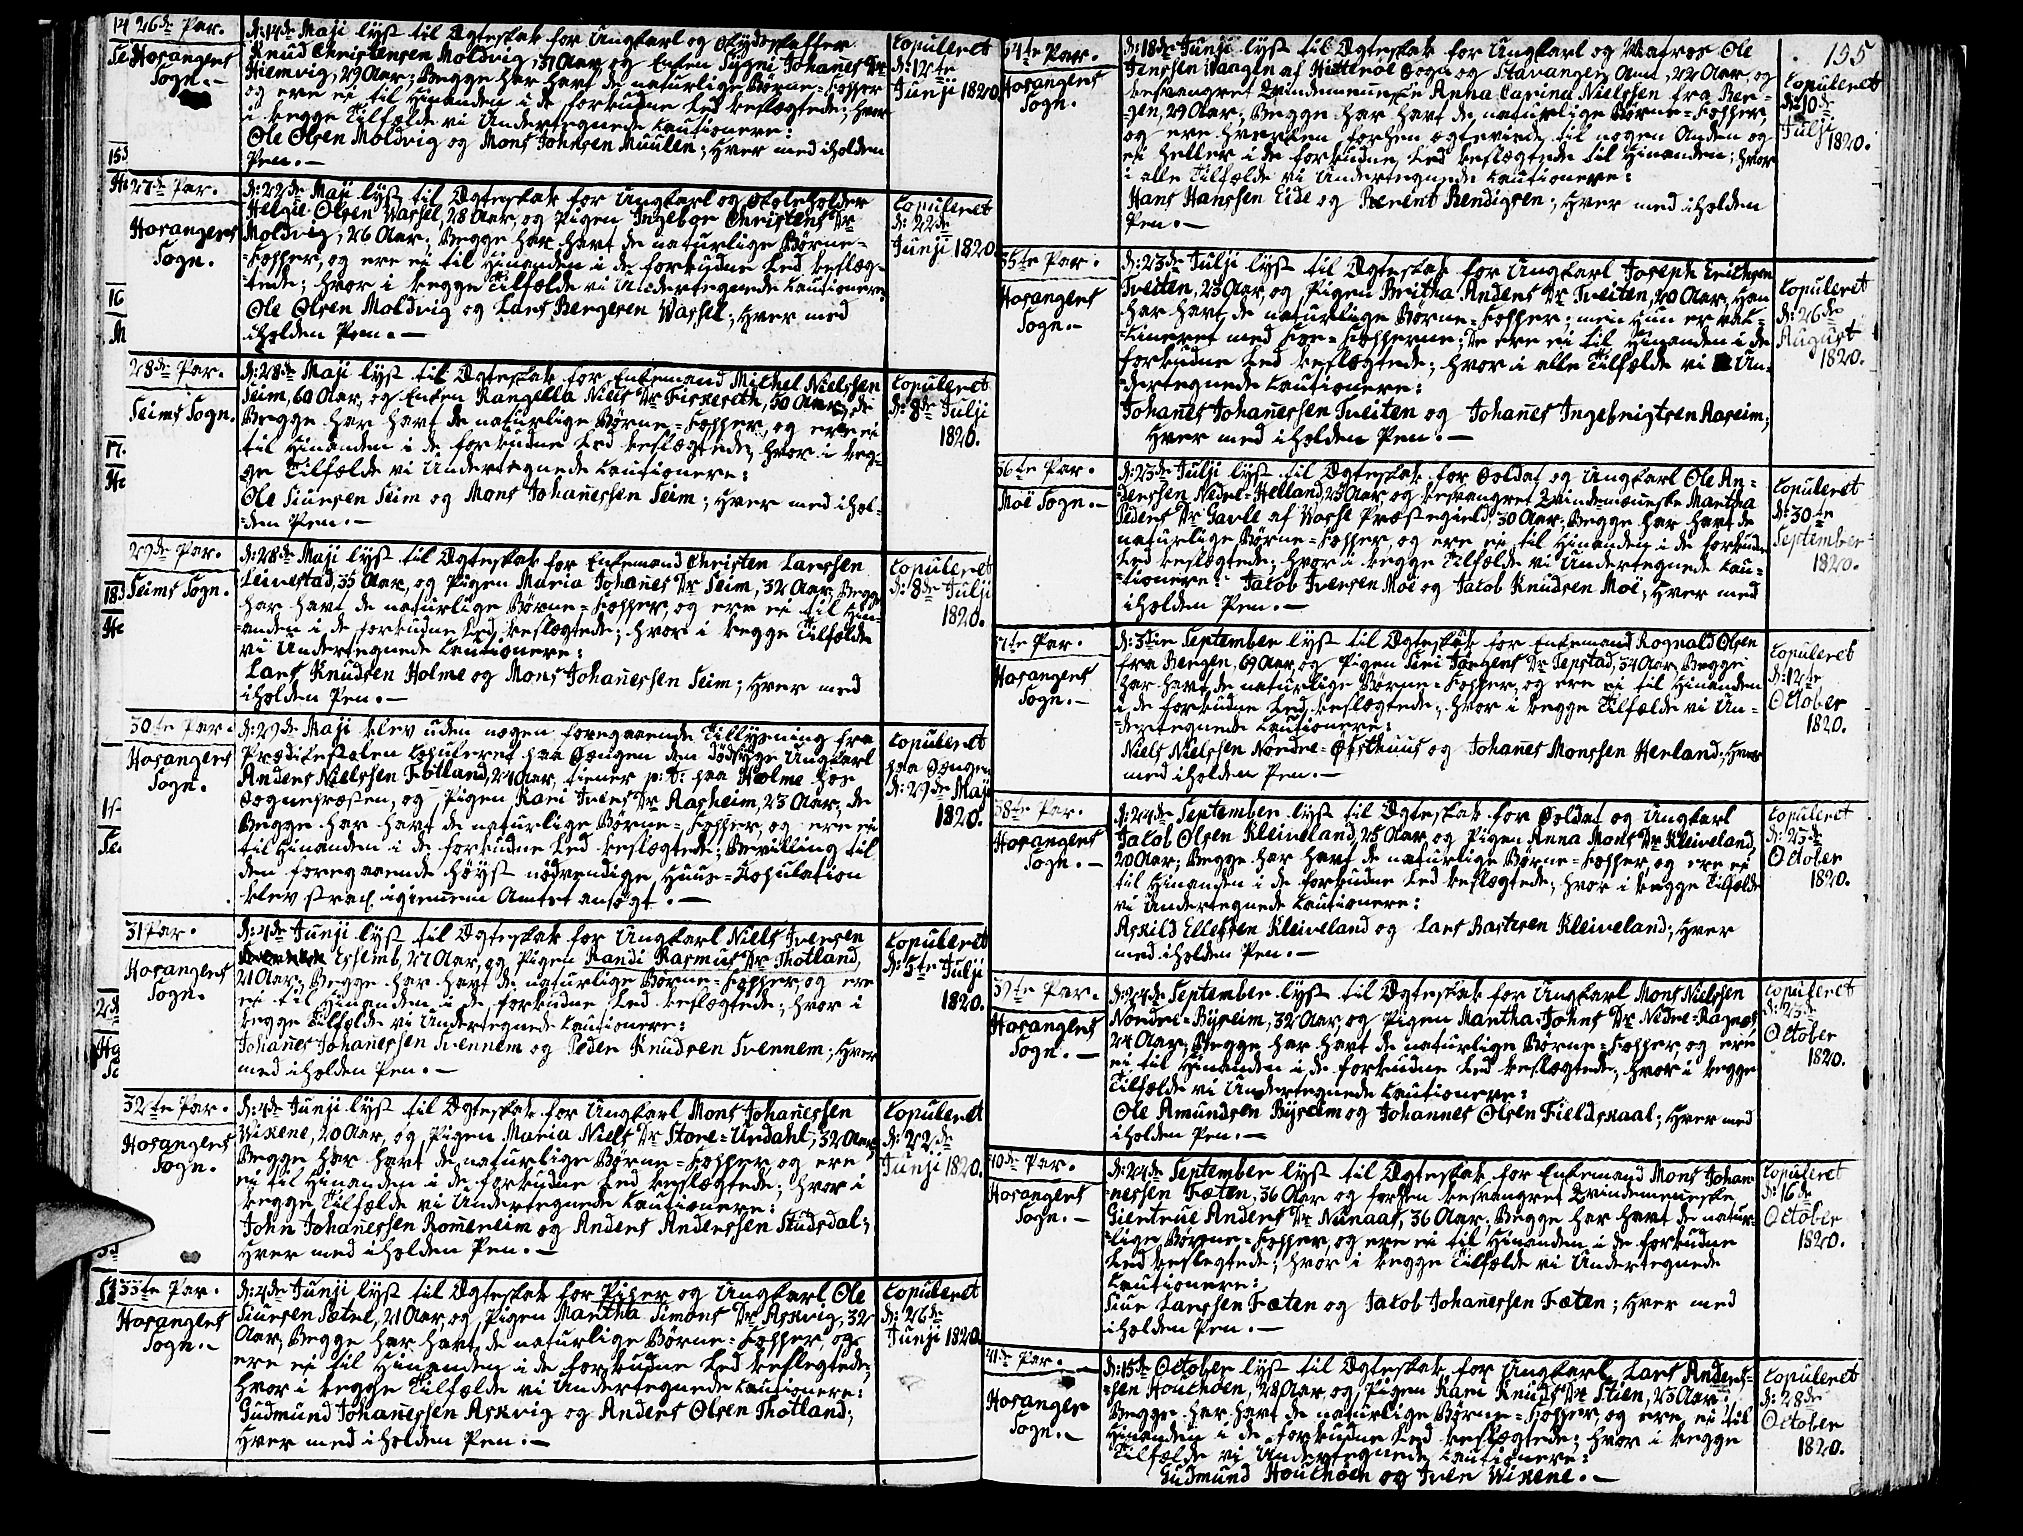 26de Par.
Hosangers
Sogn.-
d: 14de Maji lyst til Ægteskab for Ungkarl og
Knud Christensen Moldvig, 31 Aar, og Enken Sygni Johanes Dr
Hiemvig, 29 Aar; Begge har havt de naturlige Børne=Kopper
og ere ei til Hinanden i de forbudne Led beslægtede; hvor
i begge Tilfælde vi Undertegnede Cautionere:
Ole Olsen Moldvig og Mons Johnsen Muulen; Hver med iholden
Pen.-
Copuleret
d: 12te
Junji 1820.
27de Par.
Hosangers
Sogn.
d: 22de Maji lyst til Ægteskab for Ungkarl og Skoleholder
Helgie Olsen Wassel, 28 Aar, og Pigen Ingebor Christens Dr
Moldvig, 26 Aar; Begge har havt de naturlige Børne=
=Kopper, og ere ei til Hinanden i de forbudne Led beslæg-
tede; hvor i begge Tilfælde vi Undertegnede Cautionere:
Ole Olsen Moldvig og Lars Bergesen Wassel; Hver med
iholden Pen.-
Copuleret
d: 22de
Junji 1820
28de Par.
Seims Sogn.
d: 28de Maji lyst til Ægteskab for Enkemand Michel Nielssen
Seim, 60 Aar, og Enken Rangella Niels Dr Fiskseth, 50 Aar, de
Begge har havt de naturlige Børne=Kopper, og ere ei
til Hinanden i de forbudne Led beslægtede; hvor i beg-
ge Tilfælde vi Undertegnede Cautionere:
Ole Siursen Seim og Mons Johanessen Seim; Hver med ihol-
den Pen.-
Copuleret
d: 8de Julji
1820.
29de Par.
Seims Sogn.
d: 28de Maji lyst til Ægteskab for Enkemand Christen Larssen
Leirestad, 35 Aar, og Pigen Maria Johanes Dr Seim, 32 Aar, Begge
har havt de naturlige Børne=Kopper, og ere ei til Hin-
anden i de forbudne Led beslægtede; hvor i begge Tilfælde
vi Undertegnede Cautionere:
Lars Knudsen Holme og Mons Johanessen Seim; Hver med
iholden Pen.-
Copuleret
d: 8de Julji
1820.
30te Par.
Hosangers
Sogn.
d: 29de Maji blev uden nogen foregaaende Tillysning fra
Prædikestolen Copuleret paa Sængen den dödsyge Ungkarl
Anders Nielssen Fotland, 24 Aar, tiener p: t: paa Holme hos
Sognepræsten, og Pigen Kari Ivers Dr Aasheim, 23 Aar, de
Begge har havt de naturlige Børne=Kopper, og ere ei
til Hinanden i de forbudne Led beslægtede; Bevilling til
den foregaaende höyst nödvendige Huus=Kopulation
blev strax igiennem Amtet ansøgt.-
Copuleret
paa Sængen
d: 29de Maji
1820.
31 Par.
Hosangers
Sogn.
d: 4de Junji lyst til Ægteskab for Ungkarl Niels Iversen
Essemb, 27 Aar, og Pigen Randi Rasmus Dr Thotland,
21 Aar; Begge har havt de naturlige Børne=Kopper, og ere
ei til Hinanden i de forbudne Led beslægtede; hvor i
begge Tilfælde vi Undertegnede Cautionere:
Johanes Johanessen Svennem og Peder Knudsen Svennem; Hver
med iholden Pen.-
Copuleret
d: 5te Julji
1820.
32te Par.
Hosangers
Sogn.
d: 4de Junji lyst til Ægteskab for Ungkarl Mons Johanessen
Wikene, 20 Aar, og Pigen Maria Niels Dr Store=Urdahl, 32 Aar,
Begge har havt de naturlige Børne=Kopper og ere
ei til Hinanden i de forbudne Led beslægtede; hvor i
begge Tilfælde vi Undertegnede Cautionere:
John Johanessen Romereim og Anders Anderssen Studsdal;
Hver med iholden Pen.-
Copuleret
d: 22de
Junji 1820.
33te Par.
Hosangers
Sogn.-
d: 4de Junji lyst til Ægteskab for Piger og Ungkarl Ole
Siursen Sætre, 21 Aar, og Pigen Martha Simons Dr Askvig, 32
Aar, Begge har havt de naturlige Børne=Kopper, og
ere ei til Hinanden i de forbudne Led beslegtede,
hvor i begge Tilfælde vi Undertegnede Cautionere:
Gudmund Johanessen Askvig og Anders Olsen Thotland;
Hver med iholden Pen.-
Copuleret
d: 26de
Junji 1820.
155
34te Par.
Hosangers
Sogn.
d: 18de Junji lyst til Ægteskab for Ungkarl og Matros Ole
Jenssen Waagen af Hitterøe Sogn og Stavanger Amt, 22 Aar, og
besvangret Qvindemenneske Anna Carina Nielssen fra Ber-
gen, 29 Aar; Begge har havt de naturlige Børne=Kopper,
og ere hverken forhen egteviede til nogen Anden og
ei heller i de forbudne Led beslægtede til Hinanden; hvor
i alle Tilfælde vi Undertegnede Cautionere:
Hans Hanssen Eide og Berent Bendigsen; Hver med iholden
Pen.-
Copuleret
d: 10de
Julji
1820.
35te Par.
Hosangers
Sogn.-
d: 23de Julji lyst til Ægteskab for Ungkarl Joseph Erichsen
Tveiten, 23 Aar, og Pigen Britha Anders Dr Tveiten, 20 Aar, Han
har havt de naturlige Børne=Kopper, men Hun er vac-
cineret med Koe=Kopperne; De ere ei til Hinanden i de
forbudne Led beslægtede; hvor i alle Tilfælde vi Un-
dertegnede Cautionere:
Johanes Johanessen Tveiten og Johanes Ingebrigtsen Aaseim;
Hver med iholden Pen.-
Copuleret
d: 26de
August
1820.
36te Par.
Moë Sogn.-
d: 23de Julji lyst til Ægteskab for Soldat og Ungkarl Ole An-
derssen Nedre=Helland, 25 Aar, og besvangret Qvindemenneske Martha
Peders Dr Gavle af Wosse Præstegield, 30 Aar; Begge har havt de
naturlige Børne=Kopper, og ere ei til Hinanden i de forbudne
Led beslægtede; hvor i begge Tilfælde vi Undertegnede Cau-
tionere: Jacob Iversen Moë og Jacob Knudsen Moë; Hver med
iholden Pen.-
Copuleret
d: 30te
September
1820.
37te Par.
Hosangers
Sogn.-
d: 3die September lyst til Ægteskab for Enkemand Rognald Olsen
fra Bergen, 69 Aar, og Pigen Siri Jørgens Dr Sepstad, 34 Aar, Begge
har havt de naturlige Børne=Kopper, og ere ei til Hinanden
i de forbudne Led beslægtede; hvor i begge Tilfælde vi Un-
dertegnede Cautionere:
Niels Nielssen Nordre=Østhuus og Johanes Monssen Herland; Hver
med iholden Pen.-
Copuleret
d: 12te
October
1820.
38te Par.
Hosangers
Sogn.-
d: 24de September lyst til Ægteskab for Soldat og Ungkarl
Jacob Olsen Kleiveland, 25 Aar, og Pigen Anna Mons Dr Kleiveland,
20 Aar; Begge har havt de naturlige Børne=Kopper, og ere ei
til Hinanden i de forbudne Led beslægtede; hvor i begge Tilfælde
vi Undertegnede Cautionere:
Askild Ellefsen Kleiveland og Lars Bartsen Kleiveland; Hver
med iholden Pen.-
Copuleret
d: 23de
October
1820.
39te Par.
Hosangers
Sogn.-
d: 24de September lyst til Ægteskab for Ungkarl Mons Nielssen
Nordre=Byseim, 32 Aar, og Pigen Martha Johns Dr Nedre=Ragnes,
24 Aar; Begge har havt de naturlige Børne=Kopper, og ere
ei til Hinanden i de forbudne Led beslægtede; hvor i begge
Tilfælde vi Undertegnede Cautionere:
Ole Amundsen Byseim og Johannes Olsen Fieldskaal; Hver med
iholden Pen.-
Copuleret
d: 23de
October
1820.
40de Par.
Hosangers
Sogn.-
d: 24de September lyst til Ægteskab for Enkemand Mons Johan-
nessen Fæten, 36 Aar og forhen besvangret Qvindemenneske
Giertrue Anders Dr Nunaas, 36 Aar; Begge har havt de natur-
lige Børne=Kopper, og ere ei til Hinanden i de forbudne
Led beslegtede; hvor i begge Tilfælde vi Undertegnede
Cautionere:
Siur Larssen Fæten og Jacob Johanessen Fæten; Hver med
iholden Pen.-
Copuleret
d: 16de
October
1820.
41de Par.
Hosangers
Sogn.-
d: 15de October lyst til Ægteskab for Ungkarl Lars Anders-
sen Houchoen, 28 Aar, og Pigen Kari Knuds Dr Stien, 23 Aar
Begge har havt de naturlige Børne=Kopper og ere ei til
Hinanden i de forbudne Led beslægtede; hvor i begge
Tilfælde vi Undertegnede Cautionere:
Gudmund Houchoen og Iver Wikene.-
Copuleret
d: 28de
October
1820.